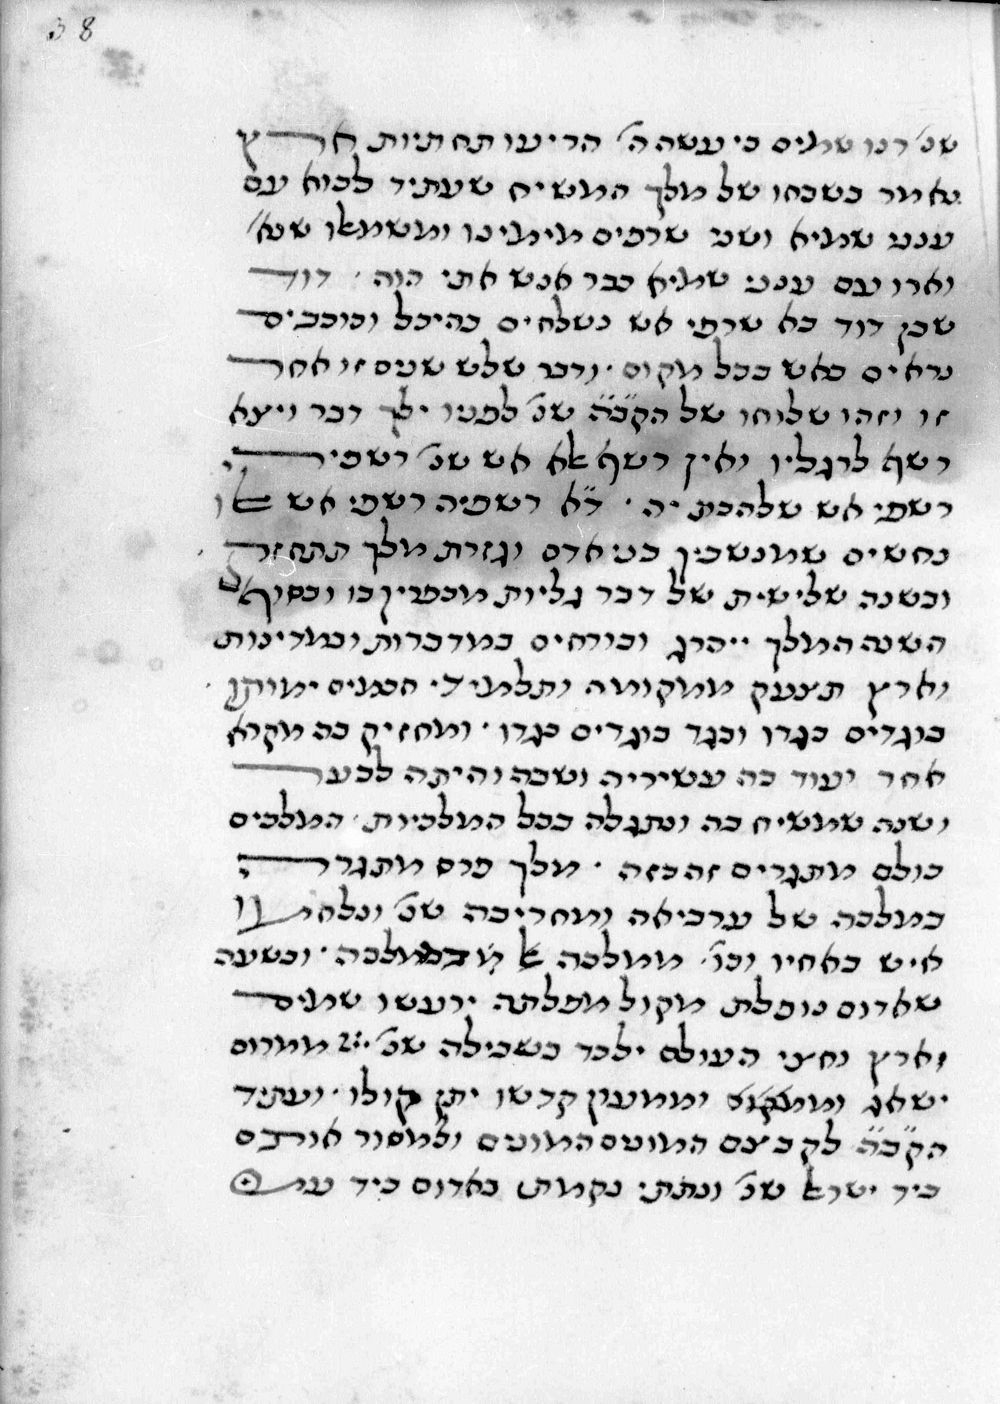 38
שנ׳ רנו שמים כי עשה ה׳ הריעו תחתיות ארץ
נאמר בשבחו של מלך המשיח שעתיד לבוא עם
ענני שמיא ושני שרפים מימינו ומשמאלו שנא׳
וארו עם ענני שמיא כבר אנש אתי הוה · דוד
שבן דוד בא שרפי אש נשלחים בהיכל וכוכבים
נראים כאש בכל מקום · ודבר שלש שנים זו אחר
זו וזהו שלוחו של הק״ב״ה שנ׳ לפניו ילך דבר ויצא
רשף לרגליו ואין רשף אלא אש שנ׳ רשפיה
רשפי אש שלהבת יה · ד״א רשפיה רשפי אש אלו
נחשים שמנשכין בני אדם וגזרת מלך תתחזר
ובשנה שלישית של דבר גליות מכפרין בו ובסוף
השנה המלך ייהרג ובורחים במדברות ובמדינות
וארץ תצעק ממקומה ותלמידי חכמים ימותון
בוגדים בגדו ובגד בוגדים בגדו · ומחזיק בה מקרא
אחר ועוד בה עשיריה ושבה והיתה לבער
ושנה שמשיח בה ונתגלה בכל המלכיות · המלכים
כולם מתגרים זה בזה · מלך פרס מתגרה
במלכה של ערביאה ומחריבה שנ׳ ונלחמו
איש באחיו וכו׳ ממלכה בממלכה · ובשעה
שאדום נופלת מקול מפלתה ירעשו שמים
וארץ וחצי העולם ילכד בשבילה שנ׳ ממרום
ישאג וממעון קדשו יתן קולו · ועתיד
הק״ב״ה לקבצם המונים המונים ולמסור אותם
ביד ישראל שנ׳ ונתתי נקמתי באדום ביד עמי